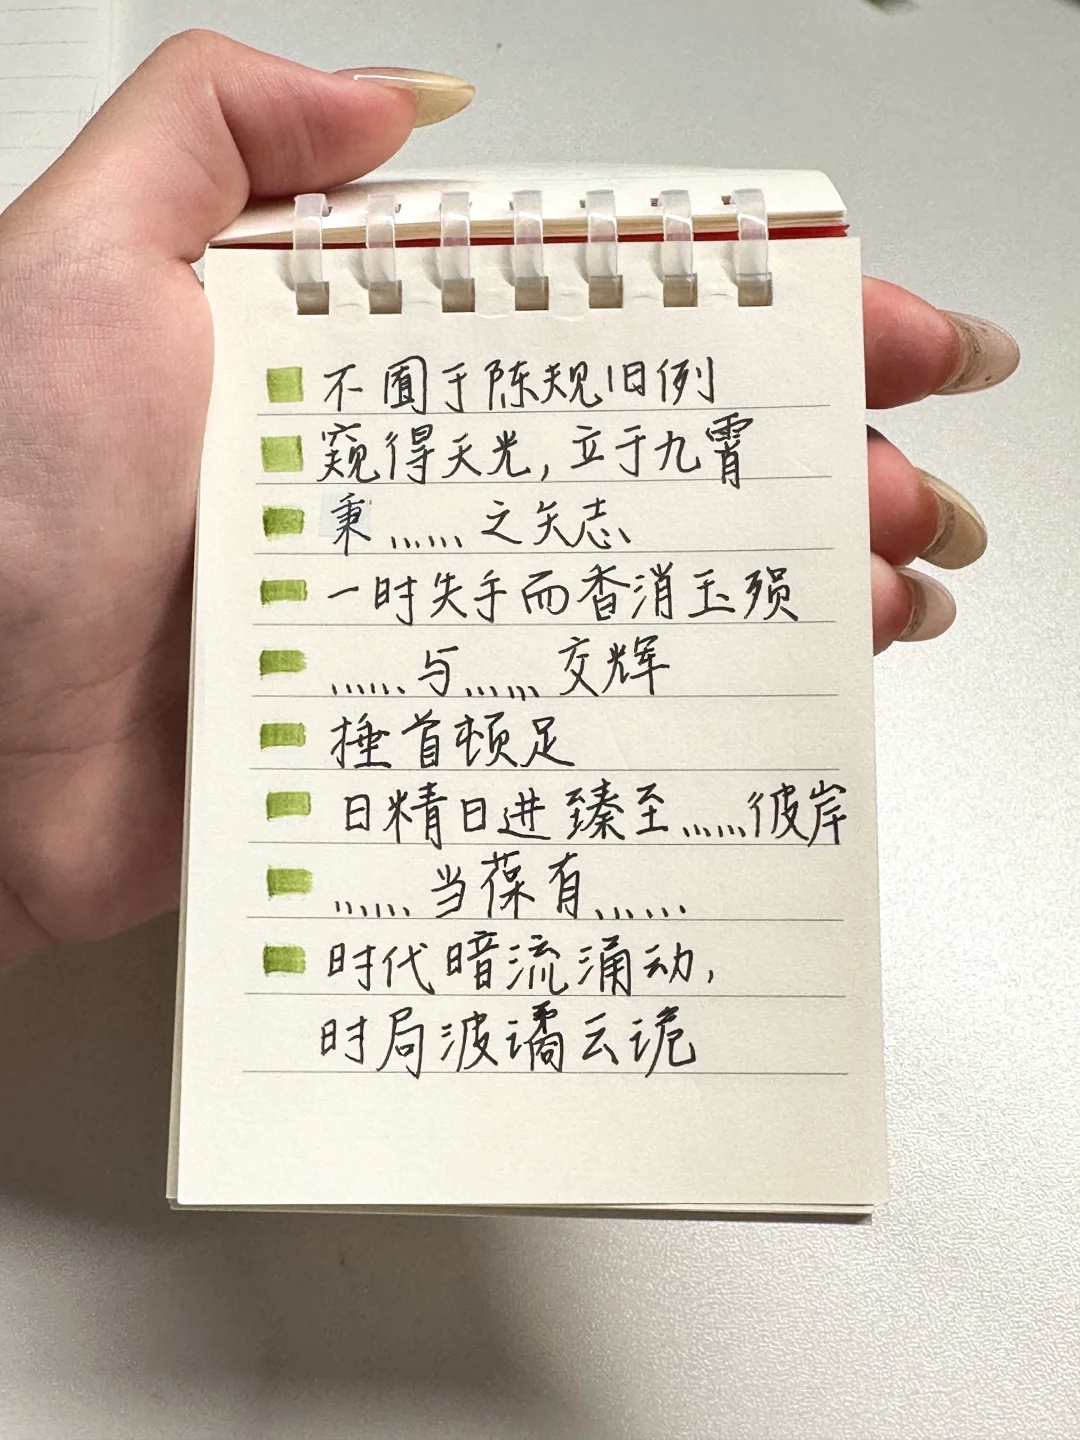 不囿于陈规旧例
窥得天光,立于九霄
秉……之矢志
一时失手而香消玉殒
……与……交辉
捶首顿足
日精日进 臻至……彼岸
……当葆有……
时代暗流涌动,
时局波谲云诡